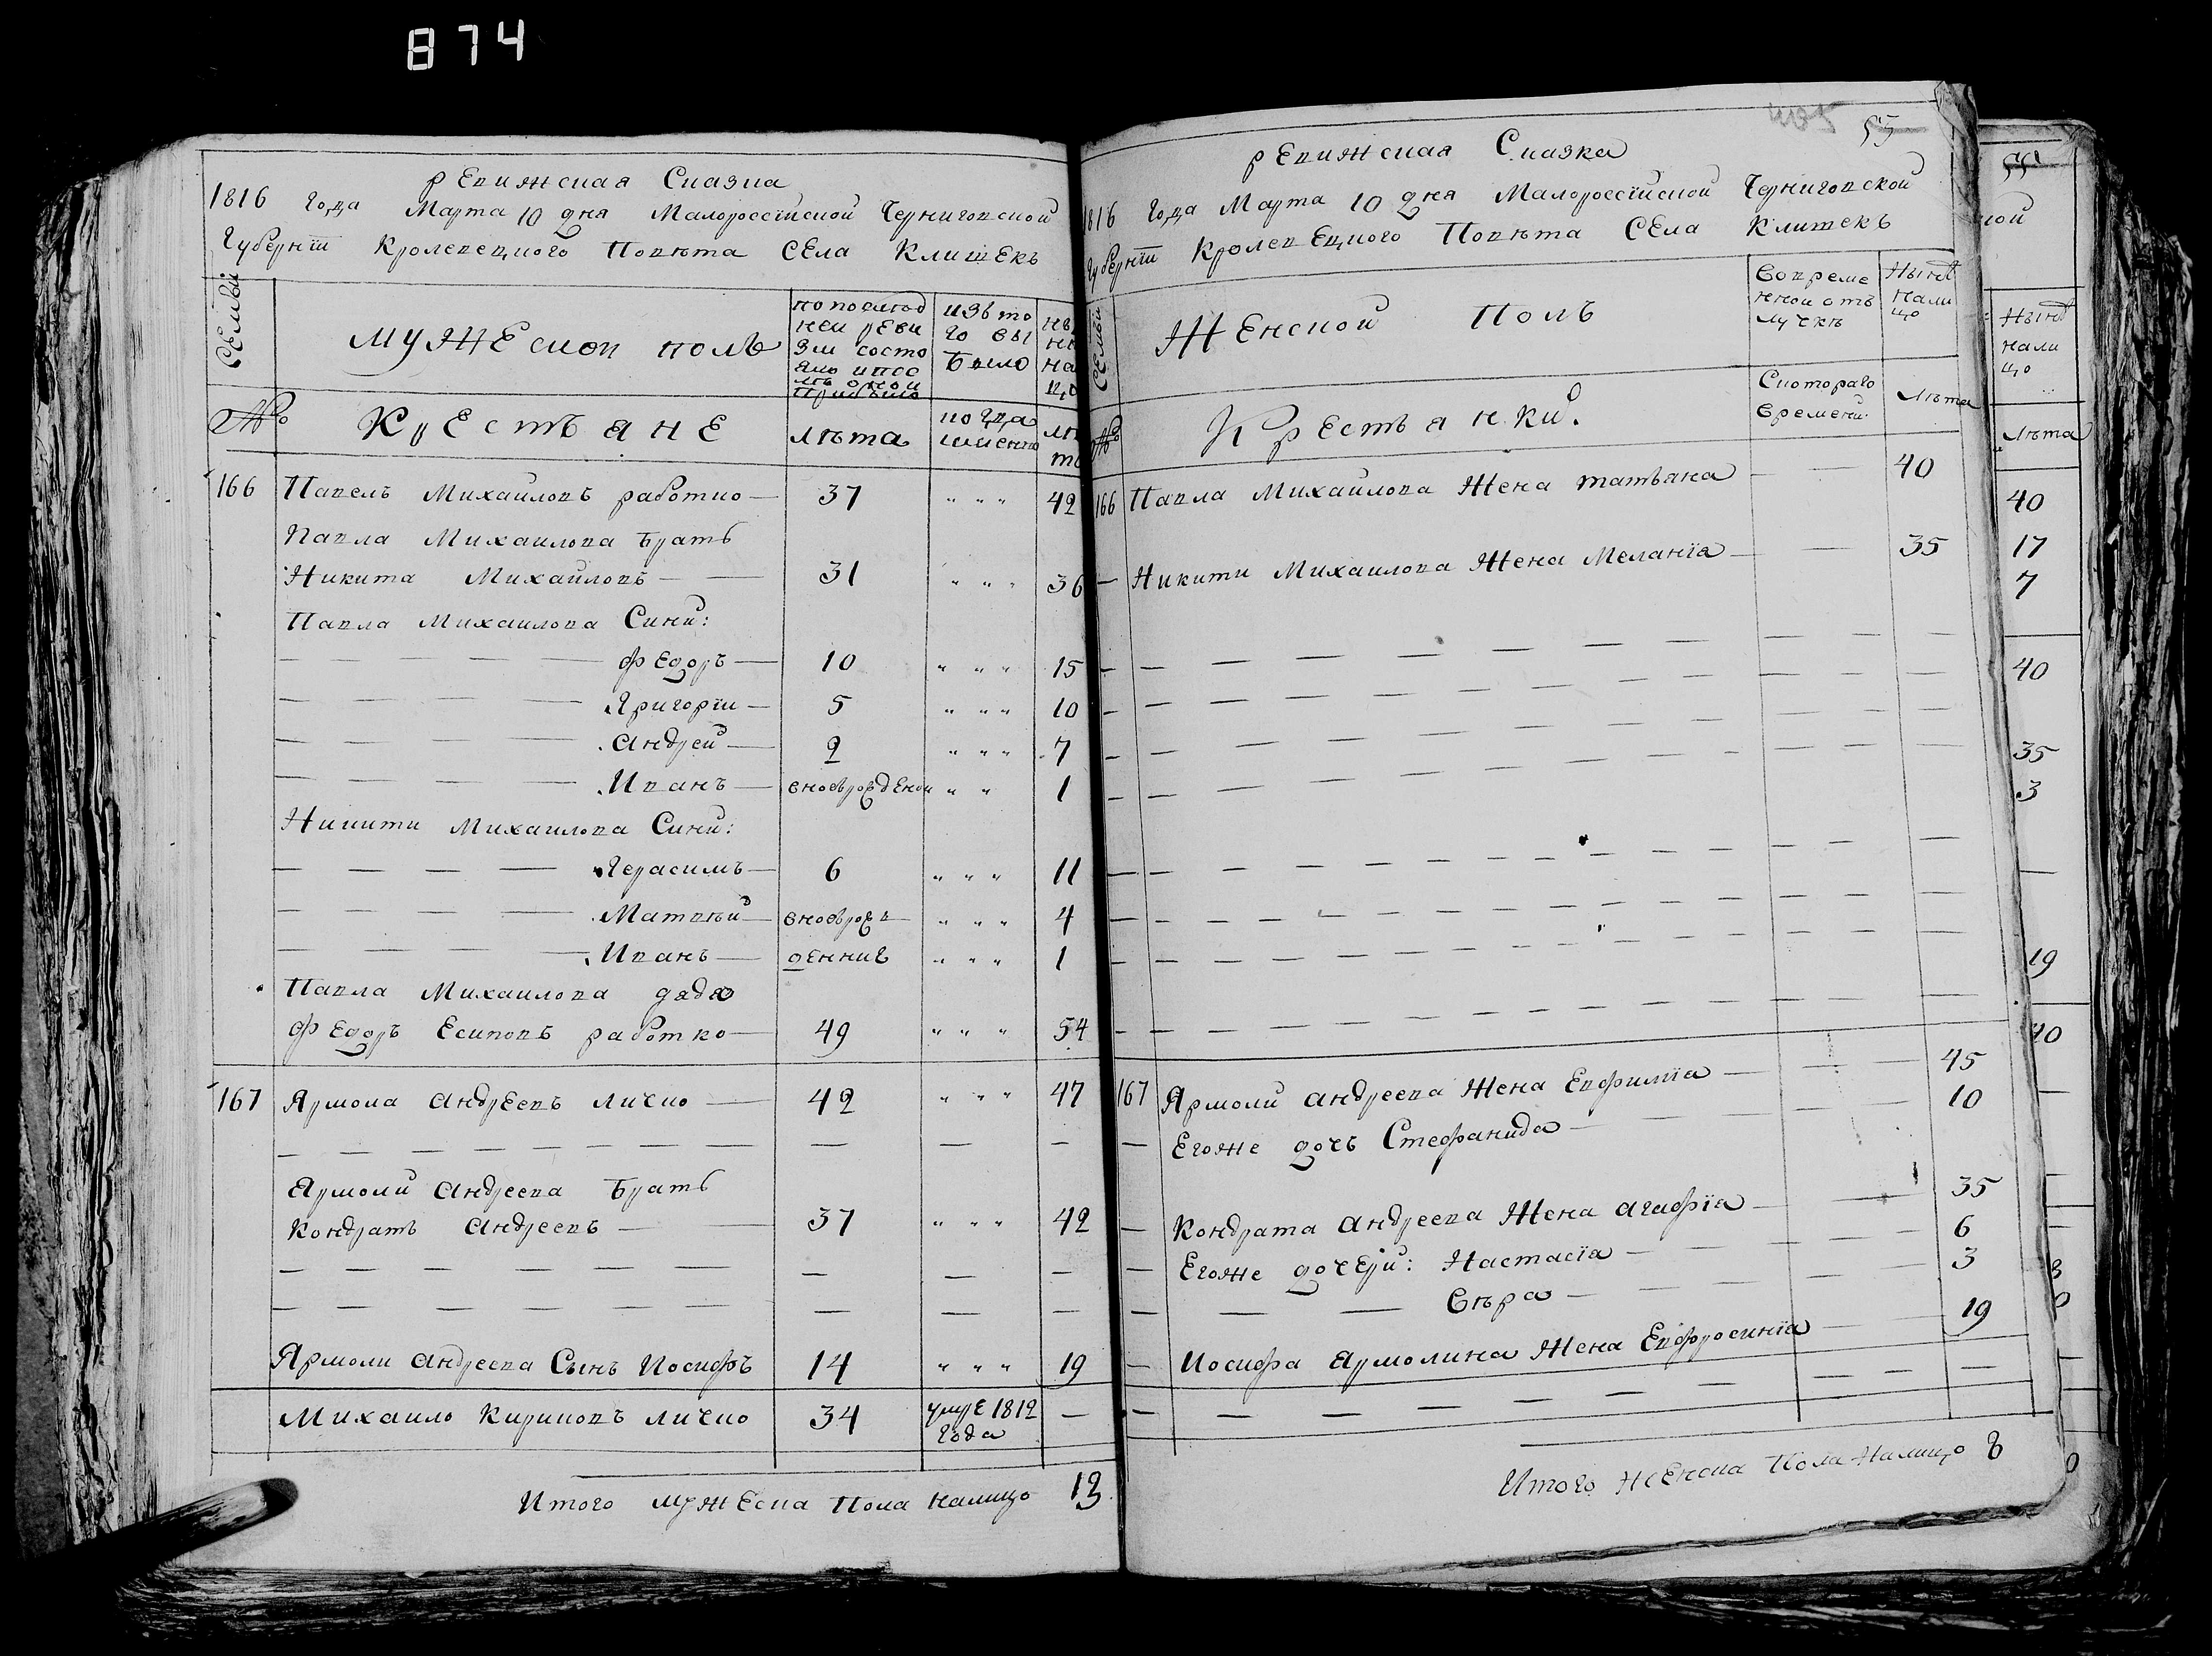 874
ревижская Сказка
1816 года Марта 10 дня Малороссїйской Черниговской
Губернїи Кролевецкого Повѣта Села Клишекъ
Семьи
мужеской полъ
по послѣд
ней реви
зіи состо
яло и пос
лѣ оной
прибыло
изъ то
го вы
было
№
Крестьяне
лѣта
когда
именно
лѣ
та
166 Павелъ Михайловъ работно — 37 " " " 42
Павла Михаилова братъ
Никита Михайловъ — — 31 " " " 36
Павла Михаилова Сини:
— — — — — федоръ — 10 " " " 15
— — — — Григорїи — 5 " " " 10
— — — — андрей — 2 " " " 7
— — — — Иванъ — вноврожденой " " 1
Никити Михаилова Сини:
— — — — — Герасимъ — 6 " " " 11
— — — — — Матвѣй — вновро — " " " 4
— — — — Иванъ — денние " " " 1
Павла Михаилова дядя
федоръ Есиповъ работко — 49 " " " 54
167 Ярмола андреевъ лично — 42 " " " 47
— — — — — — — — — — — —
Ярмоли андреева братъ
Кондратъ андреевъ — — 37 " " " 42
— — — — — — — — — —
— — — — — — — — — —
Ярмоли андреева Сынъ Иосифъ 14 " " " 19
Михаило Кириковъ лично 34 умре 1812 —
года
Итого мужеска пола налицо 13
55
ревижская Сказка
1816 года Марта 10 дня Малороссїйской Черниговской
Губернїи Кролевецкого Повѣта Села Клишекъ
Семьи
Женской полъ
Вовреме
нной отъ
лучкѣ
Нынѣ
нали
цо
№
Крестьянки:
Скотораго
времени
Лѣта
166 Павла Михайлова Жена татьяна — — 40
— Никити Михаилова Жена Меланїа — — 35
167 Ярмоли андреева Жена Евфимїа — — 45
— Егоже дочь Стефанида — — — 10
— Кондрата андреева Жена агафїа — — 35
— Егоже дочери: Настасїа — — — 6
— — — Вѣра — — — 3
— Иосифа Ярмолина Жена Евфросинїа — — 19
Итого женска пола налицо 8
55
ской
Нынѣ
нали
цо
Лѣта
40
17
7
40
35
3
19
40